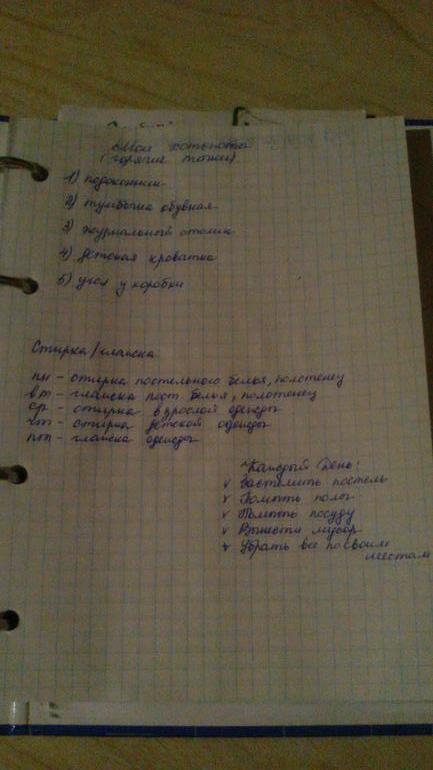 Мои хотспоты
(горячие точки)
1) подоконник
2) тумбочка обувная
3) журнальный столик
4) детская кроватка
5) угол у коробки
Стирка/глажка
пн - стирка постельного белья, полотенец
вт - глажка пост белья, полотенец
ср - стирка взрослой одежды
чт - стирка детской одежды
пт - глажка одежды
Каждый день:
v Застелить постель
v Помыть полы
v Помыть посуду
v Вынести мусор
v Убрать все по своим
местам